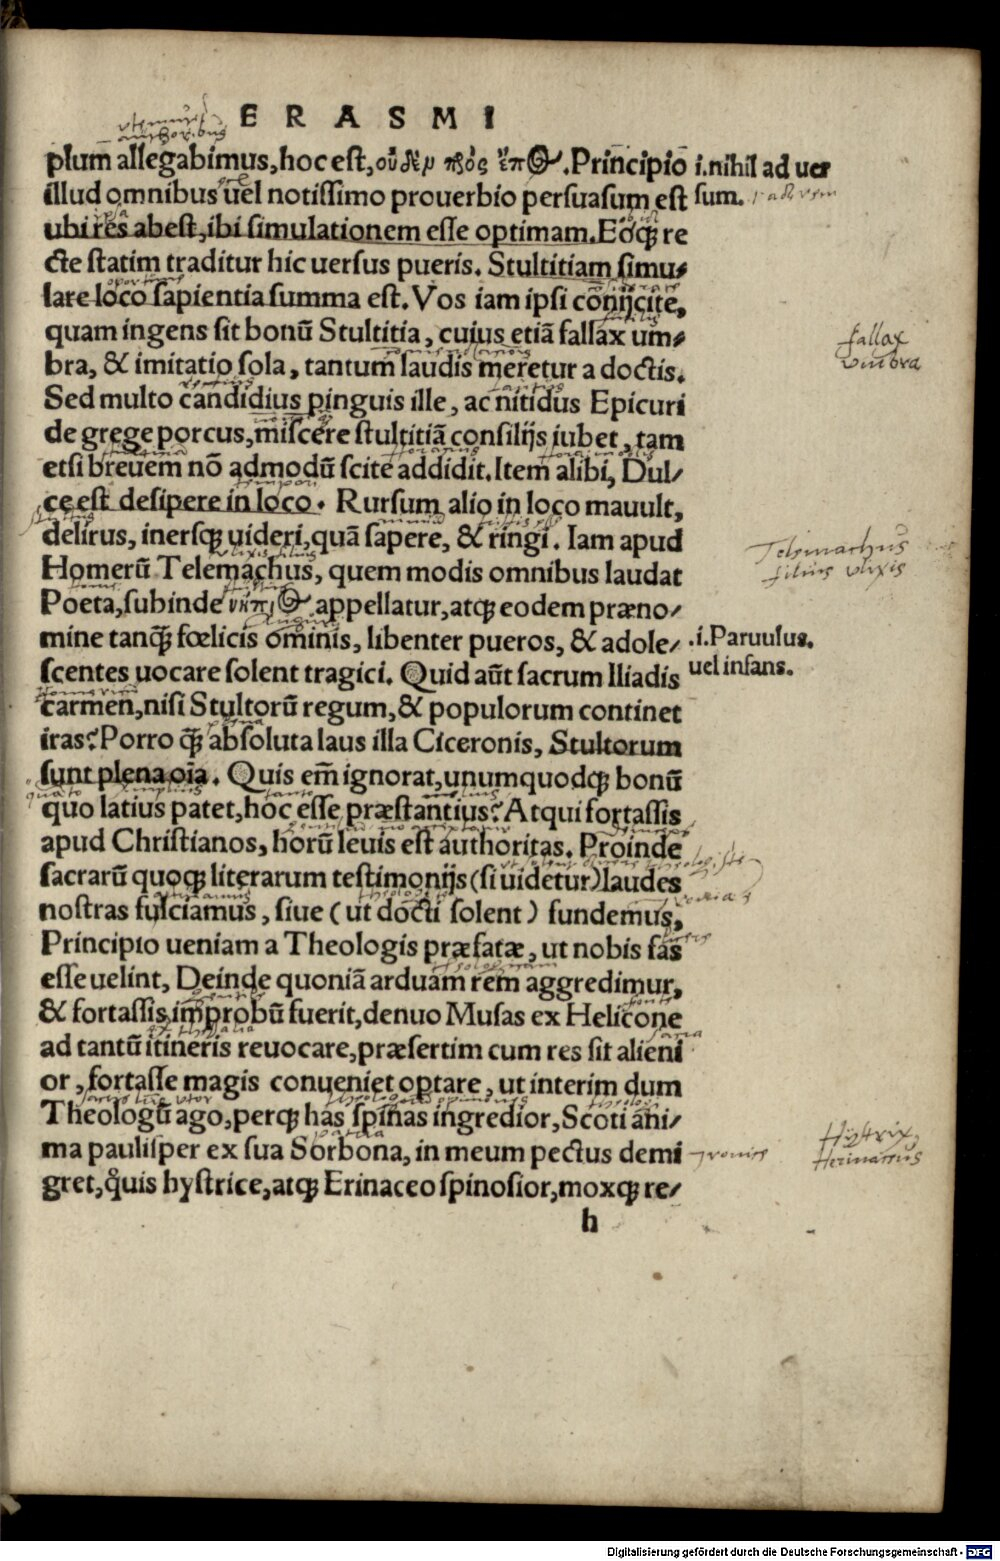 ERASMI
plum̄ allegabimus, hoc est, οὐδὲν πρὸς ἔπος. Principio i.nihil ad uer
illud omnibus uel notissimo prouerbio persuasum est sum.
ubi res abest, ibi simulationem esse optimam. Eoq́ꝫ re
cte statim traditur hic uersus pueris. Stultitiam simu⸗
lare loco sapientia summa est. Vos iam ipsi conijcite,
quam ingens sit bonū Stultitia, cuius etiā fallax um⸗
fallax
Vmbra
bra, & imitatio sola, tantum laudis meretur a doctis.
Sed multo candidius pinguis ille, ac nitidus Epicuri
de grege porcus, miscere stultitiā consilijs iubet, tam
etsi breuem nō admodū scite addidit. Item alibi, Dul⸗
ce est desipere in loco. Rursum alio in loco mauult,
delirus, inersqꝫ uideri, quā sapere, & ringi. Iam apud
Telemachus
filius vlixis
Homerū Telemachus, quem modis omnibus laudat
Poeta, subinde νήπιος appellatur, atqꝫ eodem præno⸗
mine tanq̄ꝫ fœlicis ominis, libenter pueros, & adole⸗ .i.Paruulus.
scentes uocare solent tragici. Quid aūt sacrum Iliadis uel insans.
carmen, nisi Stultorū regum, & populorum continet
iras? Porro q̄ꝫ absoluta laus illa Ciceronis, Stultorum
sunt plena oīa. Quis em̄ ignorat, unumquodqꝫ bonū
quo latius patet, hoc esse præstantius? Atqui fortassis
apud Christianos, horū leuis est authoritas. Proinde
sacrarū quoqꝫ literarum testimonijs (si uidetur) laudes
nostras fulciamus, siue (ut docti solent) fundemus,
Principio ueniam a Theologis præfatæ, ut nobis fas
esse uelint, Deinde quoniā arduam rem aggredimur,
& fortassis improbū fuerit, denuo Musas ex Helicone
ad tantū itineris reuocare, præsertim cum res sit alieni
or, fortasse magis conueniet optare, ut interim dum
Theologū ago, perqꝫ has spinas ingredior, Scoti ani⸗
ma paulisper ex sua Sorbona, in meum pectus demi
Hystrix,
Herinatius
gret, q̊uis hystrice, atqꝫ Erinaceo spinosior, moxqꝫ re⸗
h
Digitalisierung gefördert durch die Deutsche Forschungsgemeinschaft - DFG